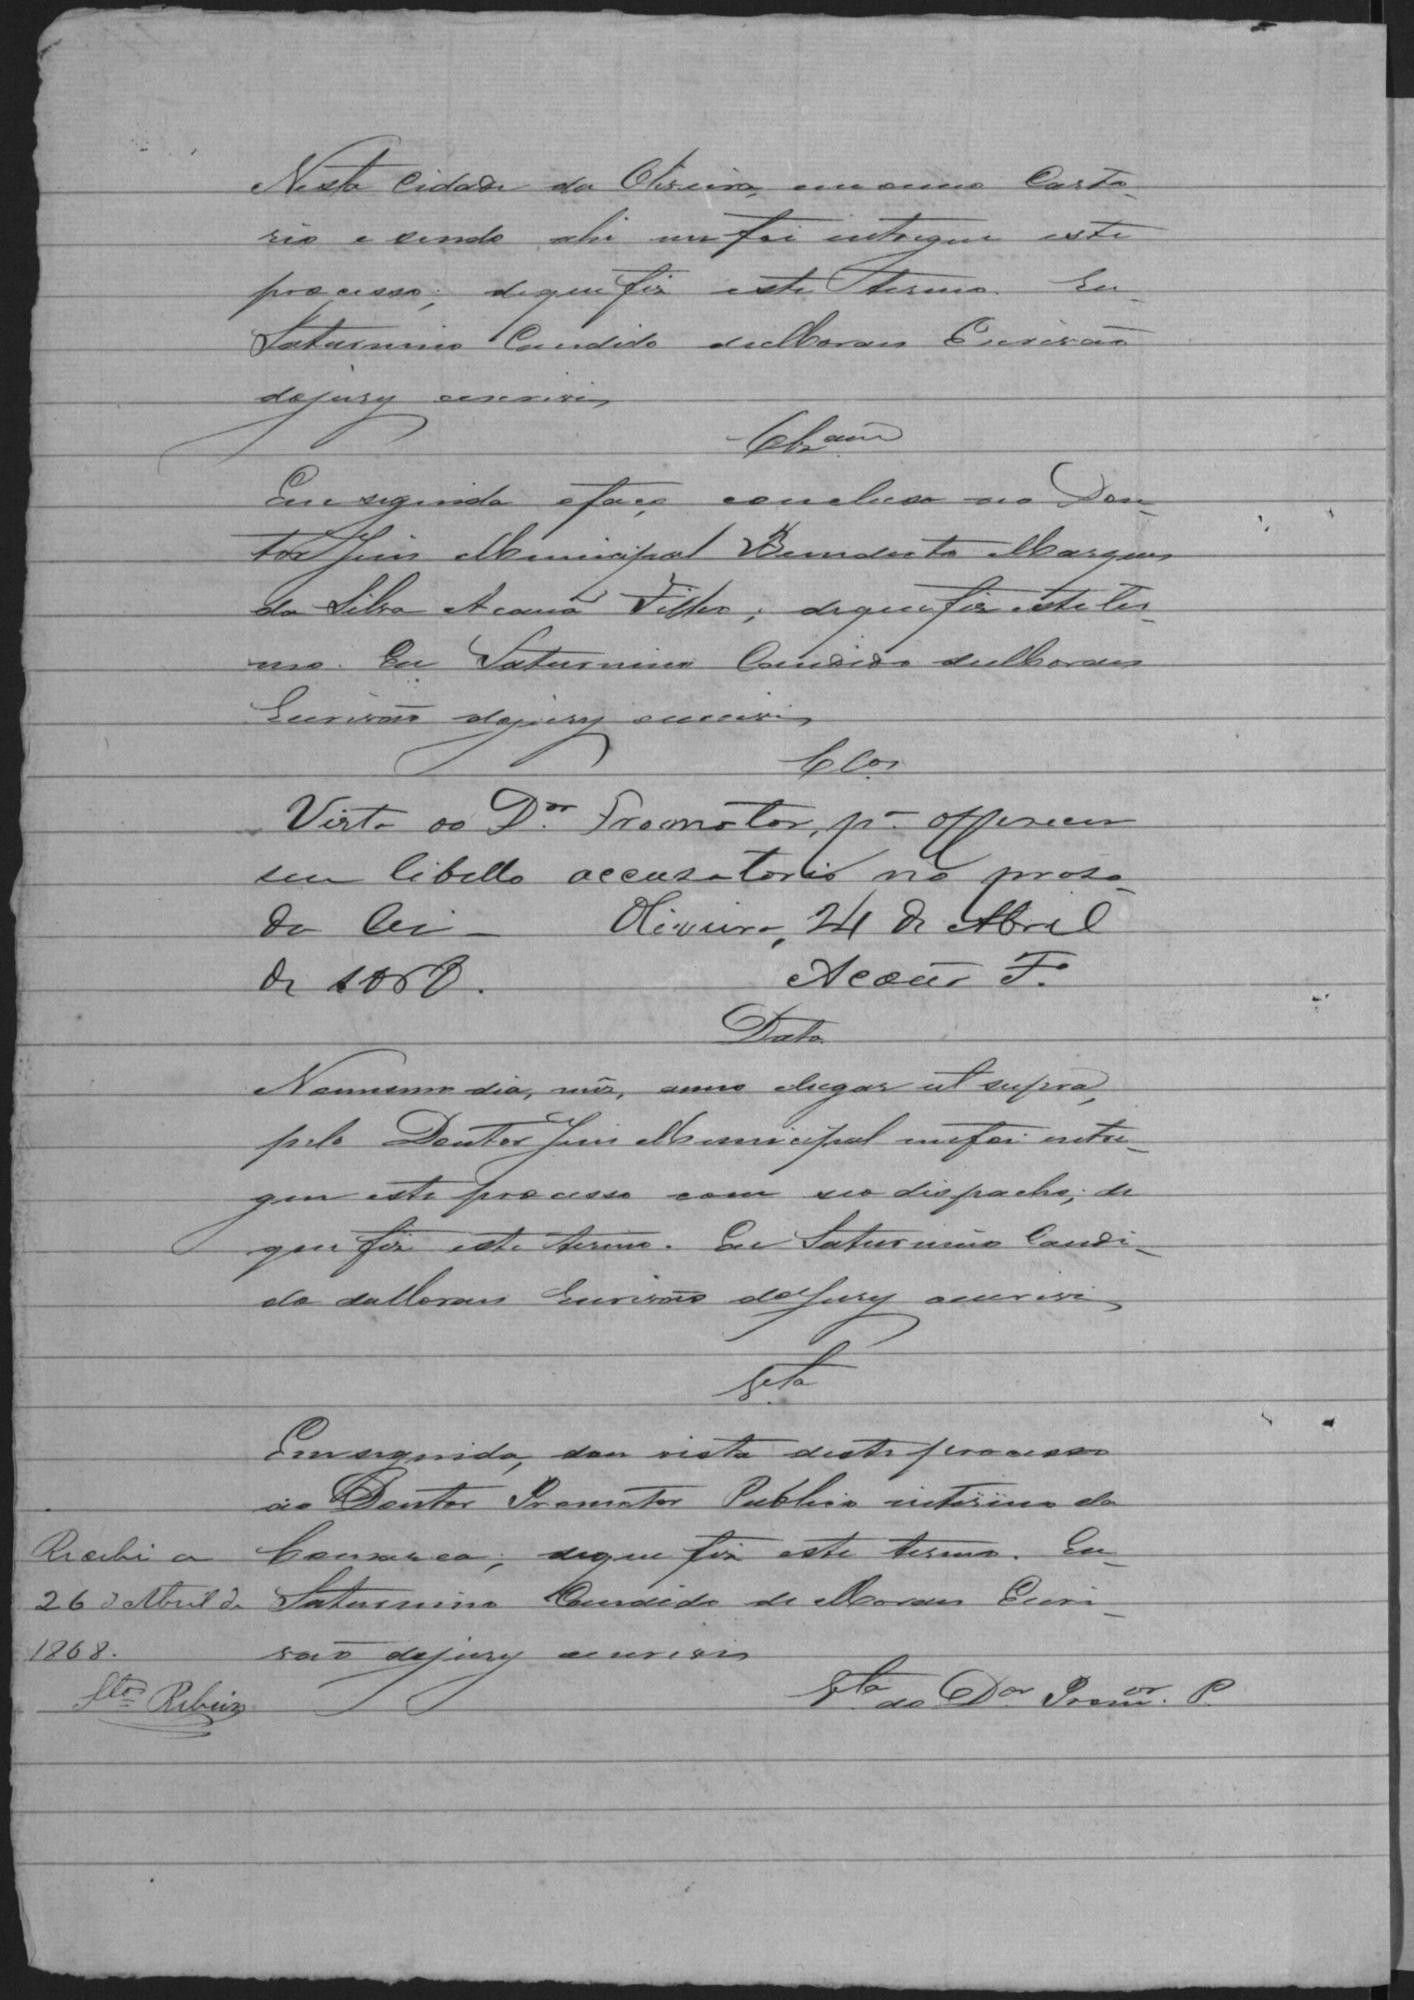 Nesta Cidade da Oliveira, em meu Carto-
rio e sendo ahi me foi entregue este
processo; de que fiz este termo. Eu
Saturnino Candido de Moraes Escrivão
do jury escrevi
Clsam
Em seguida o faço concluso ao Dou-
tor Juis Municipal Benedicto Marques
da Silva Acauã Filho; de que fiz este ter-
mo. Eu Saturnino Candido de Moraes
Escrivão do jury escrevi
Clos
Vista ao Dor Promotor, pa offerecer
seu libello accusatorio no praso
da lei – Oliveira, 24 de Abril
de 1868. Acauã Fo
Data
No mesmo dia, mês, anno e lugar ut supra,
pelo Doutor Juis Municipal me foi entre-
gue este processo com seo dispacho; de
que fiz este termo. Eu Saturnino Candi-
do de Moraes Escrivão do Jury escrevi
Vta
Em seguida, dou vista deste processo
ao Doutor Promotor Publico interino da
Comarca; de que fiz este termo. Eu
Saturnino Candido de Moraes Escri-
vão do jury escrevi
Vta ao Dor Promor. P.
Recebi a
26 d Abril de
1868.
Ribeiro